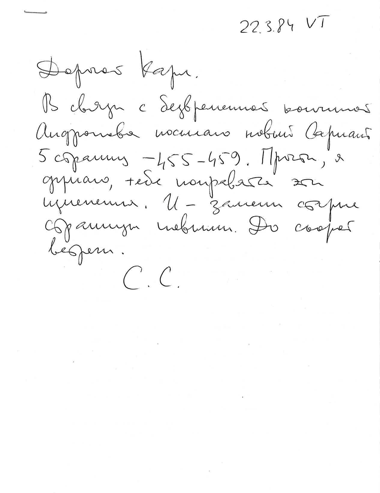 22.3.84 VT
Дорогой Карл.
В связи с безвременной кончиной
Андропова посылаю новый Вариант
5 страниц – 455–459. Прочти, я
думаю, тебе понравятся эти
изменения. И – замени старые
страницы новыми. До скорой
встречи.
С. С.